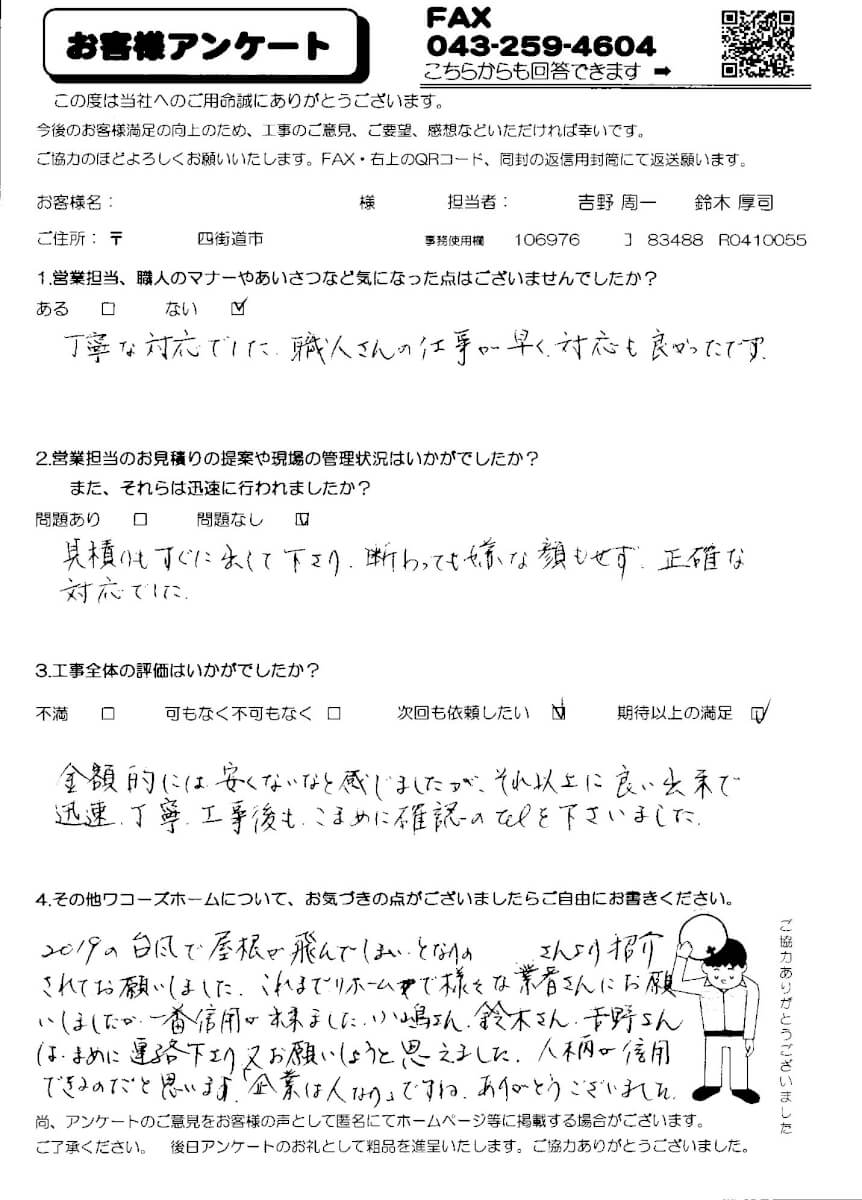 お客様アンケート
FAX
043-259-4604
こちらからも回答できます ➡
この度は当社へのご用命誠にありがとうございます。
今後のお客様満足の向上のため、工事のご意見、ご要望、感想などいただければ幸いです。
ご協力のほどよろしくお願いいたします。FAX・右上のQRコード、同封の返信用封筒にて返送願います。
お客様名： 様 担当者： 吉野 周一 鈴木 厚司
ご住所：〒 四街道市 事務使用欄 106976 83488 R0410055
1.営業担当、職人のマナーやあいさつなど気になった点はございませんでしたか？
ある □ ない ☑
丁寧な対応でした。職人さんの仕事が早く、対応も良かったです。
2.営業担当のお見積りの提案や現場の管理状況はいかがでしたか？
また、それらは迅速に行われましたか？
問題あり □ 問題なし ☑
見積りもすぐに出して下さり、断わっても嫌な顔もせず、正確な
対応でした。
3.工事全体の評価はいかがでしたか？
不満 □ 可もなく不可もなく □ 次回も依頼したい ☑ 期待以上の満足 ☑
金額的には安くないなと感じましたが、それ以上に良い出来で
迅速、丁寧、工事後も、こまめに確認のtelを下さいました。
4.その他ワコーズホームについて、お気づきの点がございましたらご自由にお書きください。
2019の台風で屋根が飛んでしまい、となりの さんより紹介
されてお願いしました。これまでリホームで様々な業者さんにお願
いしましたが、一番信用が出来ました。小嶋さん、鈴木さん、吉野さん
は、まめに連絡下さり又お願いしようと思えました。人柄が信用
できるのだと思います。「企業は人なり」ですね。ありがとうございました。
ご協力ありがとうございました
尚、アンケートのご意見をお客様の声として匿名にてホームページ等に掲載する場合がございます。
ご了承ください。 後日アンケートのお礼として粗品を進呈いたします。ご協力ありがとうございました。